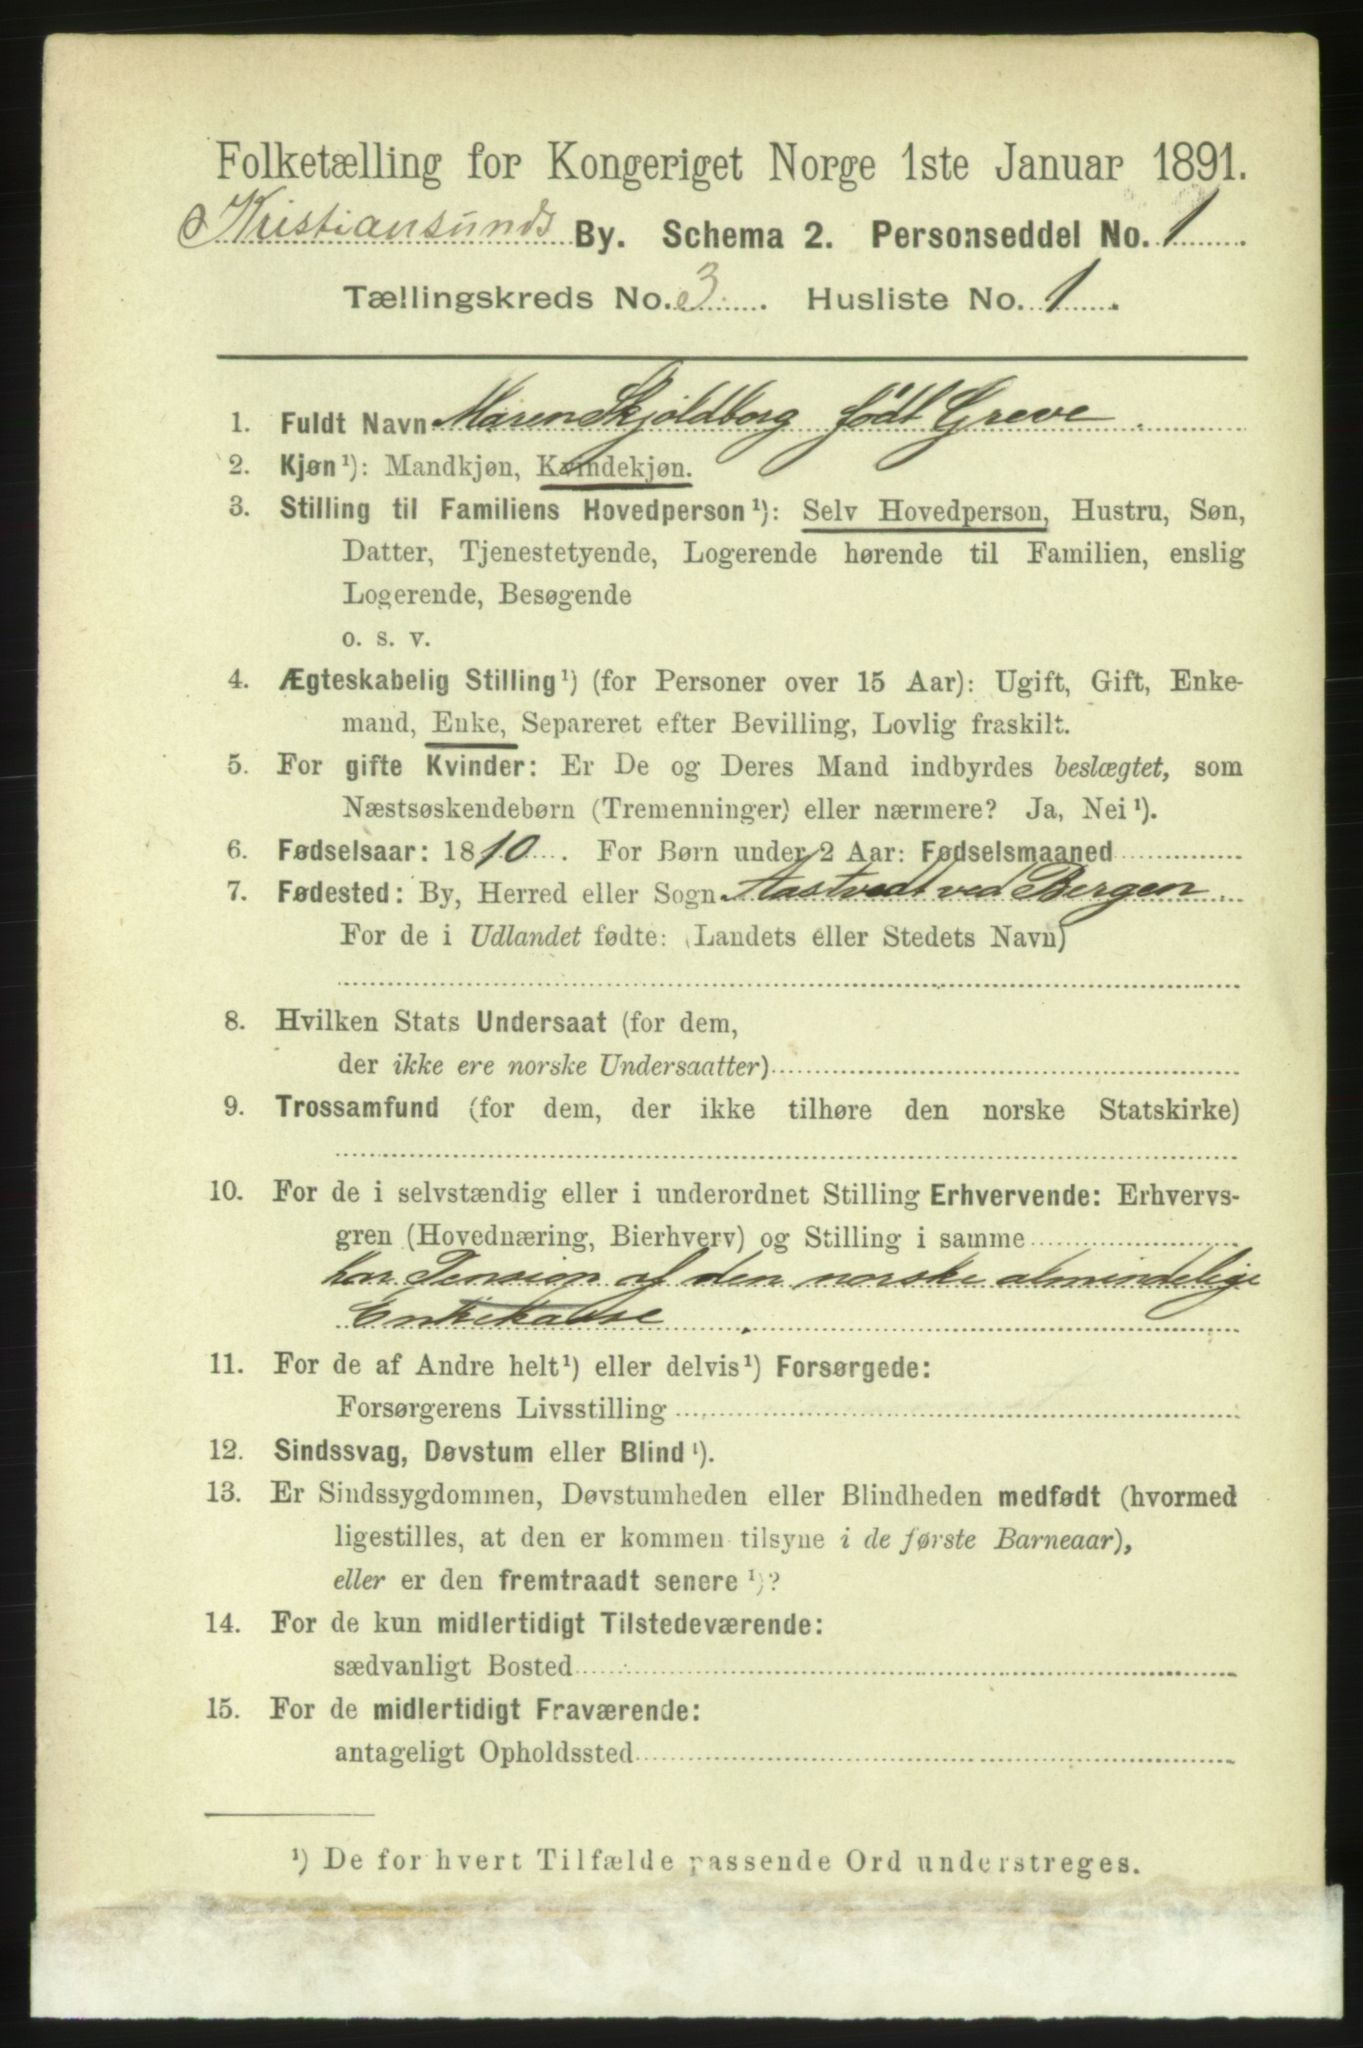 Folketælling for Kongeriget Norge 1ste Januar 1891.
Kristiansunds By. Schema 2. Personseddel No. 1
Tællingskreds No. 3. Husliste No. 1.
1. Fuldt Navn Maren Skjoldborg født Greve.
2. Kjøn¹): Mandkjøn, Kvindekjøn.
3. Stilling til Familiens Hovedperson¹): Selv Hovedperson, Hustru, Søn,
Datter, Tjenestetyende, Logerende hørende til Familien, enslig
Logerende, Besøgende
o. s. v.
4. Ægteskabelig Stilling¹) (for Personer over 15 Aar): Ugift, Gift, Enke-
mand, Enke, Separeret efter Bevilling, Lovlig fraskilt.
5. For gifte Kvinder: Er De og Deres Mand indbyrdes beslægtet, som
Næstsøskendebørn (Tremenninger) eller nærmere? Ja, Nei¹).
6. Fødselsaar: 1810. For Børn under 2 Aar: Fødselsmaaned
7. Fødested: By, Herred eller Sogn Aastvedt ved Bergen.
For de i Udlandet fødte: (Landets eller Stedets Navn)
8. Hvilken Stats Undersaat (for dem,
der ikke ere norske Undersaatter)
9. Trossamfund (for dem, der ikke tilhøre den norske Statskirke)
10. For de i selvstændig eller i underordnet Stilling Erhvervende: Erhvervs-
gren (Hovednæring, Bierhverv) og Stilling i samme
har Pension af den norske almindelige
Enkekasse.
11. For de af Andre helt¹) eller delvis¹) Forsørgede:
Forsørgerens Livsstilling
12. Sindssvag, Døvstum eller Blind¹).
13. Er Sindssygdommen, Døvstumheden eller Blindheden medfødt (hvormed
ligestilles, at den er kommen tilsyne i de første Barneaar),
eller er den fremtraadt senere¹)?
14. For de kun midlertidigt Tilstedeværende:
sædvanligt Bosted
15. For de midlertidigt Fraværende:
antageligt Opholdssted
¹) De for hvert Tilfælde passende Ord understreges.